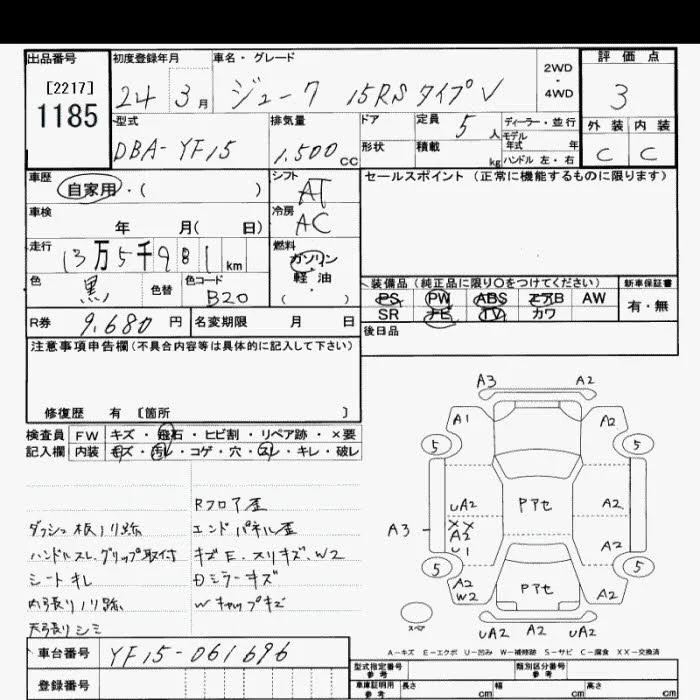 出品番号
[2217]
1185
初度登録年月
24年3月
車名・グレード
ジューク 15RS タイプV
2WD
・
4WD
評価点
3
外装 内装
C C
型式
DBA-YF15
排気量
1.500 cc
ドア
形状
定員 5人
積載 kg
ディーラー・並行
モデル
年式 年
ハンドル 左・右
車歴
自家用・( )
車検
年 月( 日)
走行
13万5千981km
色
黒
色替
色コード
B20
シフト
AT
冷房
AC
燃料
ガソリン
軽・油
( )
R券 9.680円
名変期限 月 日
セールスポイント(正常に機能するものに限ります)
装備品(純正品に限り〇をつけてください)
PS PW ABS エアB AW
SR ナビ TV カワ
新車保証書
有・無
後日品
注意事項申告欄(不具合内容等は具体的に記入して下さい)
修復歴 有 〔箇所 〕
検査員
記入欄
FW キズ・飛石・ヒビ割・リペア跡・×要
内装 キズ・汚レ・コゲ・穴・スレ・キレ・破レ
ダッシュ板ノリ跡
ハンドルスレ.グリップ取付
シートキレ
内張りノリ跡
天張りシミ
Rフロア歪
エンドパネル歪
キズE.スリキズ.W2
Dミラーキズ
Wキャップキズ
A3 A2
A1 A2
5 5
UA2 Pアセ A2
XX
A2
U1
A3
A2
5 5
A2
W2
Pアセ
A2
スペア
UA2 A2 UA2
A-キズ E-エクボ U-凹み W-補修跡 S-サビ C-腐食 XX-交換済
車台番号 YF15-061696
登録番号
型式指定番号
参考
類別区分番号
参考
車庫証明用
参考
長さ cm 幅 cm 高さ cm